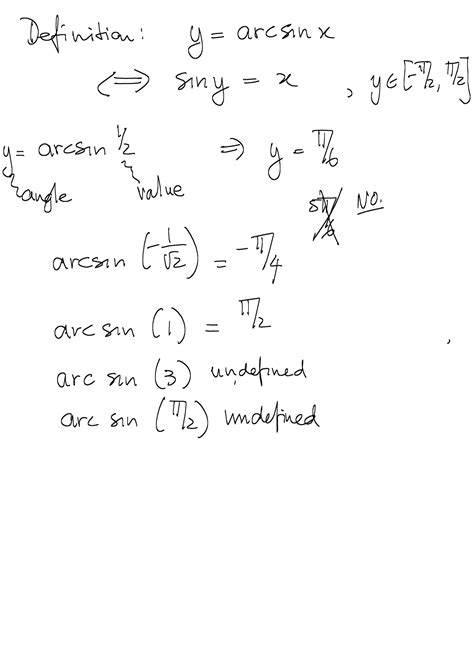 Definition: y = arcsin x
⟺ sin y = x , y ∈ [-π/2, π/2]
y = arcsin 1/2 ⇒ y = π/6
angle value 5π/6 NO.
arcsin (-1/√2) = -π/4
arc sin (1) = π/2
arc sin (3) undefined
arc sin (π/2) undefined